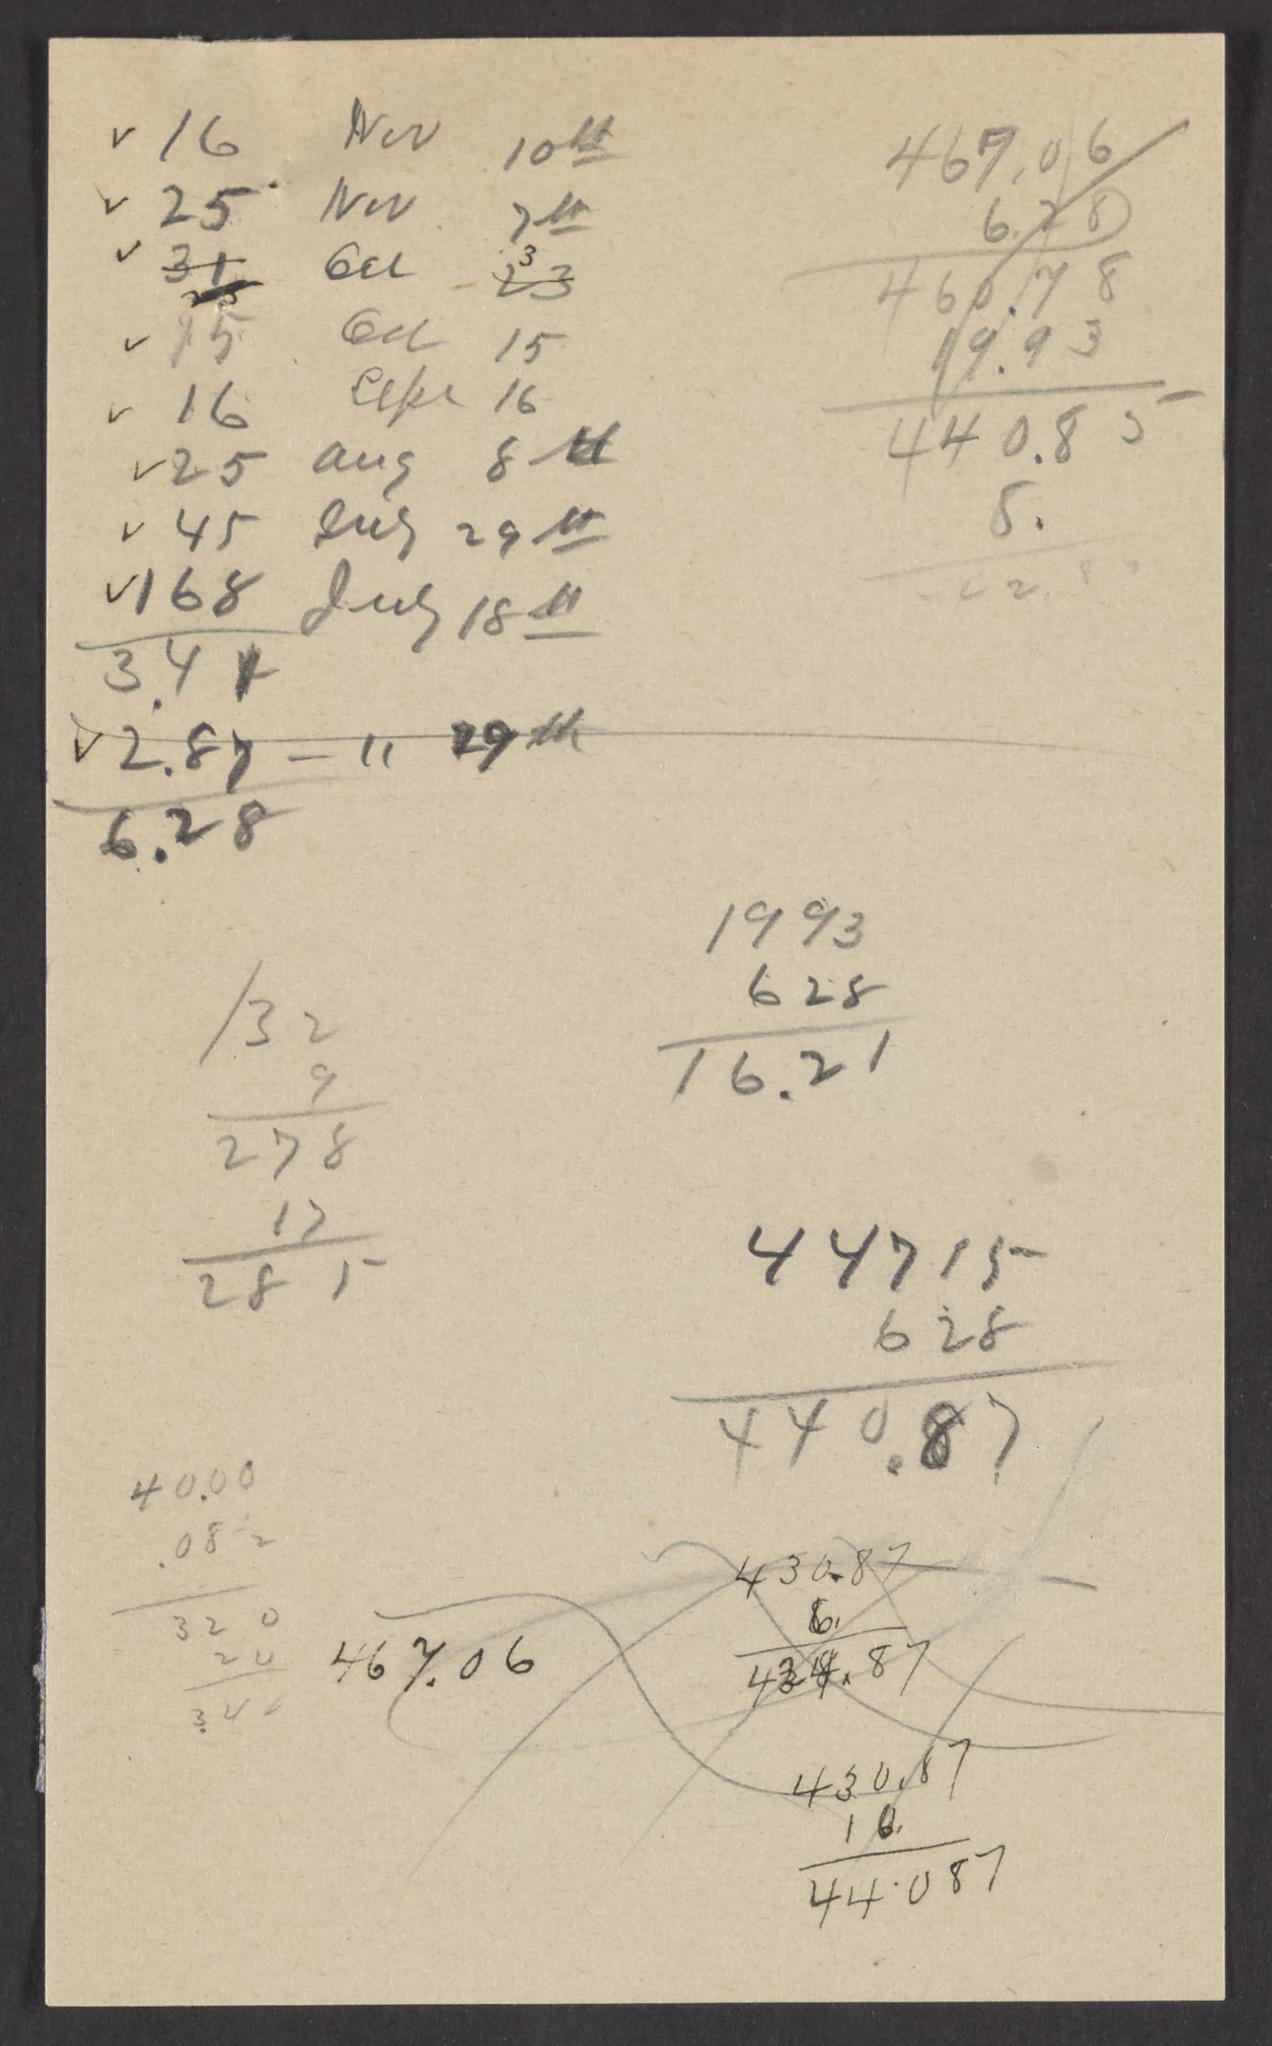 ✓ 16 Nov 10th
✓ 25 Nov 7th
✓ 31 Oct 23 3
✓ 15 Oct 15
✓ 16 Sept 16
✓ 25 Aug 8th
✓ 45 July 29th
✓ 168 July 18th
3.41
✓ 2.87 — " 29th
6.28
467.06
6.28
460.78
19.93
440.85
5.
1993
628
16.21
132
9
278
17
285
44715
628
440.87
40.00
.082
320
20
467.06
430.87
6.
424.87
430.87
10.
44.087